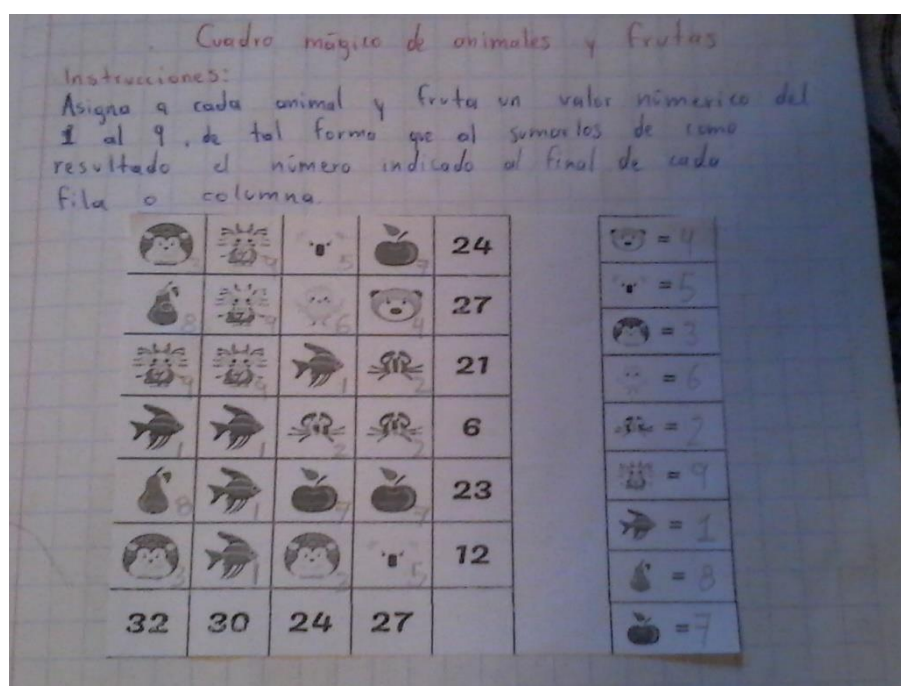 Cuadro mágico de animales y frutas
Instrucciones:
Asigna a cada animal y fruta un valor númerico del
1 al 9, de tal forma que al sumarlos de como
resultado el número indicado al final de cada
fila o columna.
9 5 7 24 = 4
8 9 6 4 27 = 5
9 9 1 2 21 = 3
1 1 2 2 6 = 6
8 1 7 7 23 = 2
3 1 3 5 12 = 9
32 30 24 27 = 1
= 8
= 7